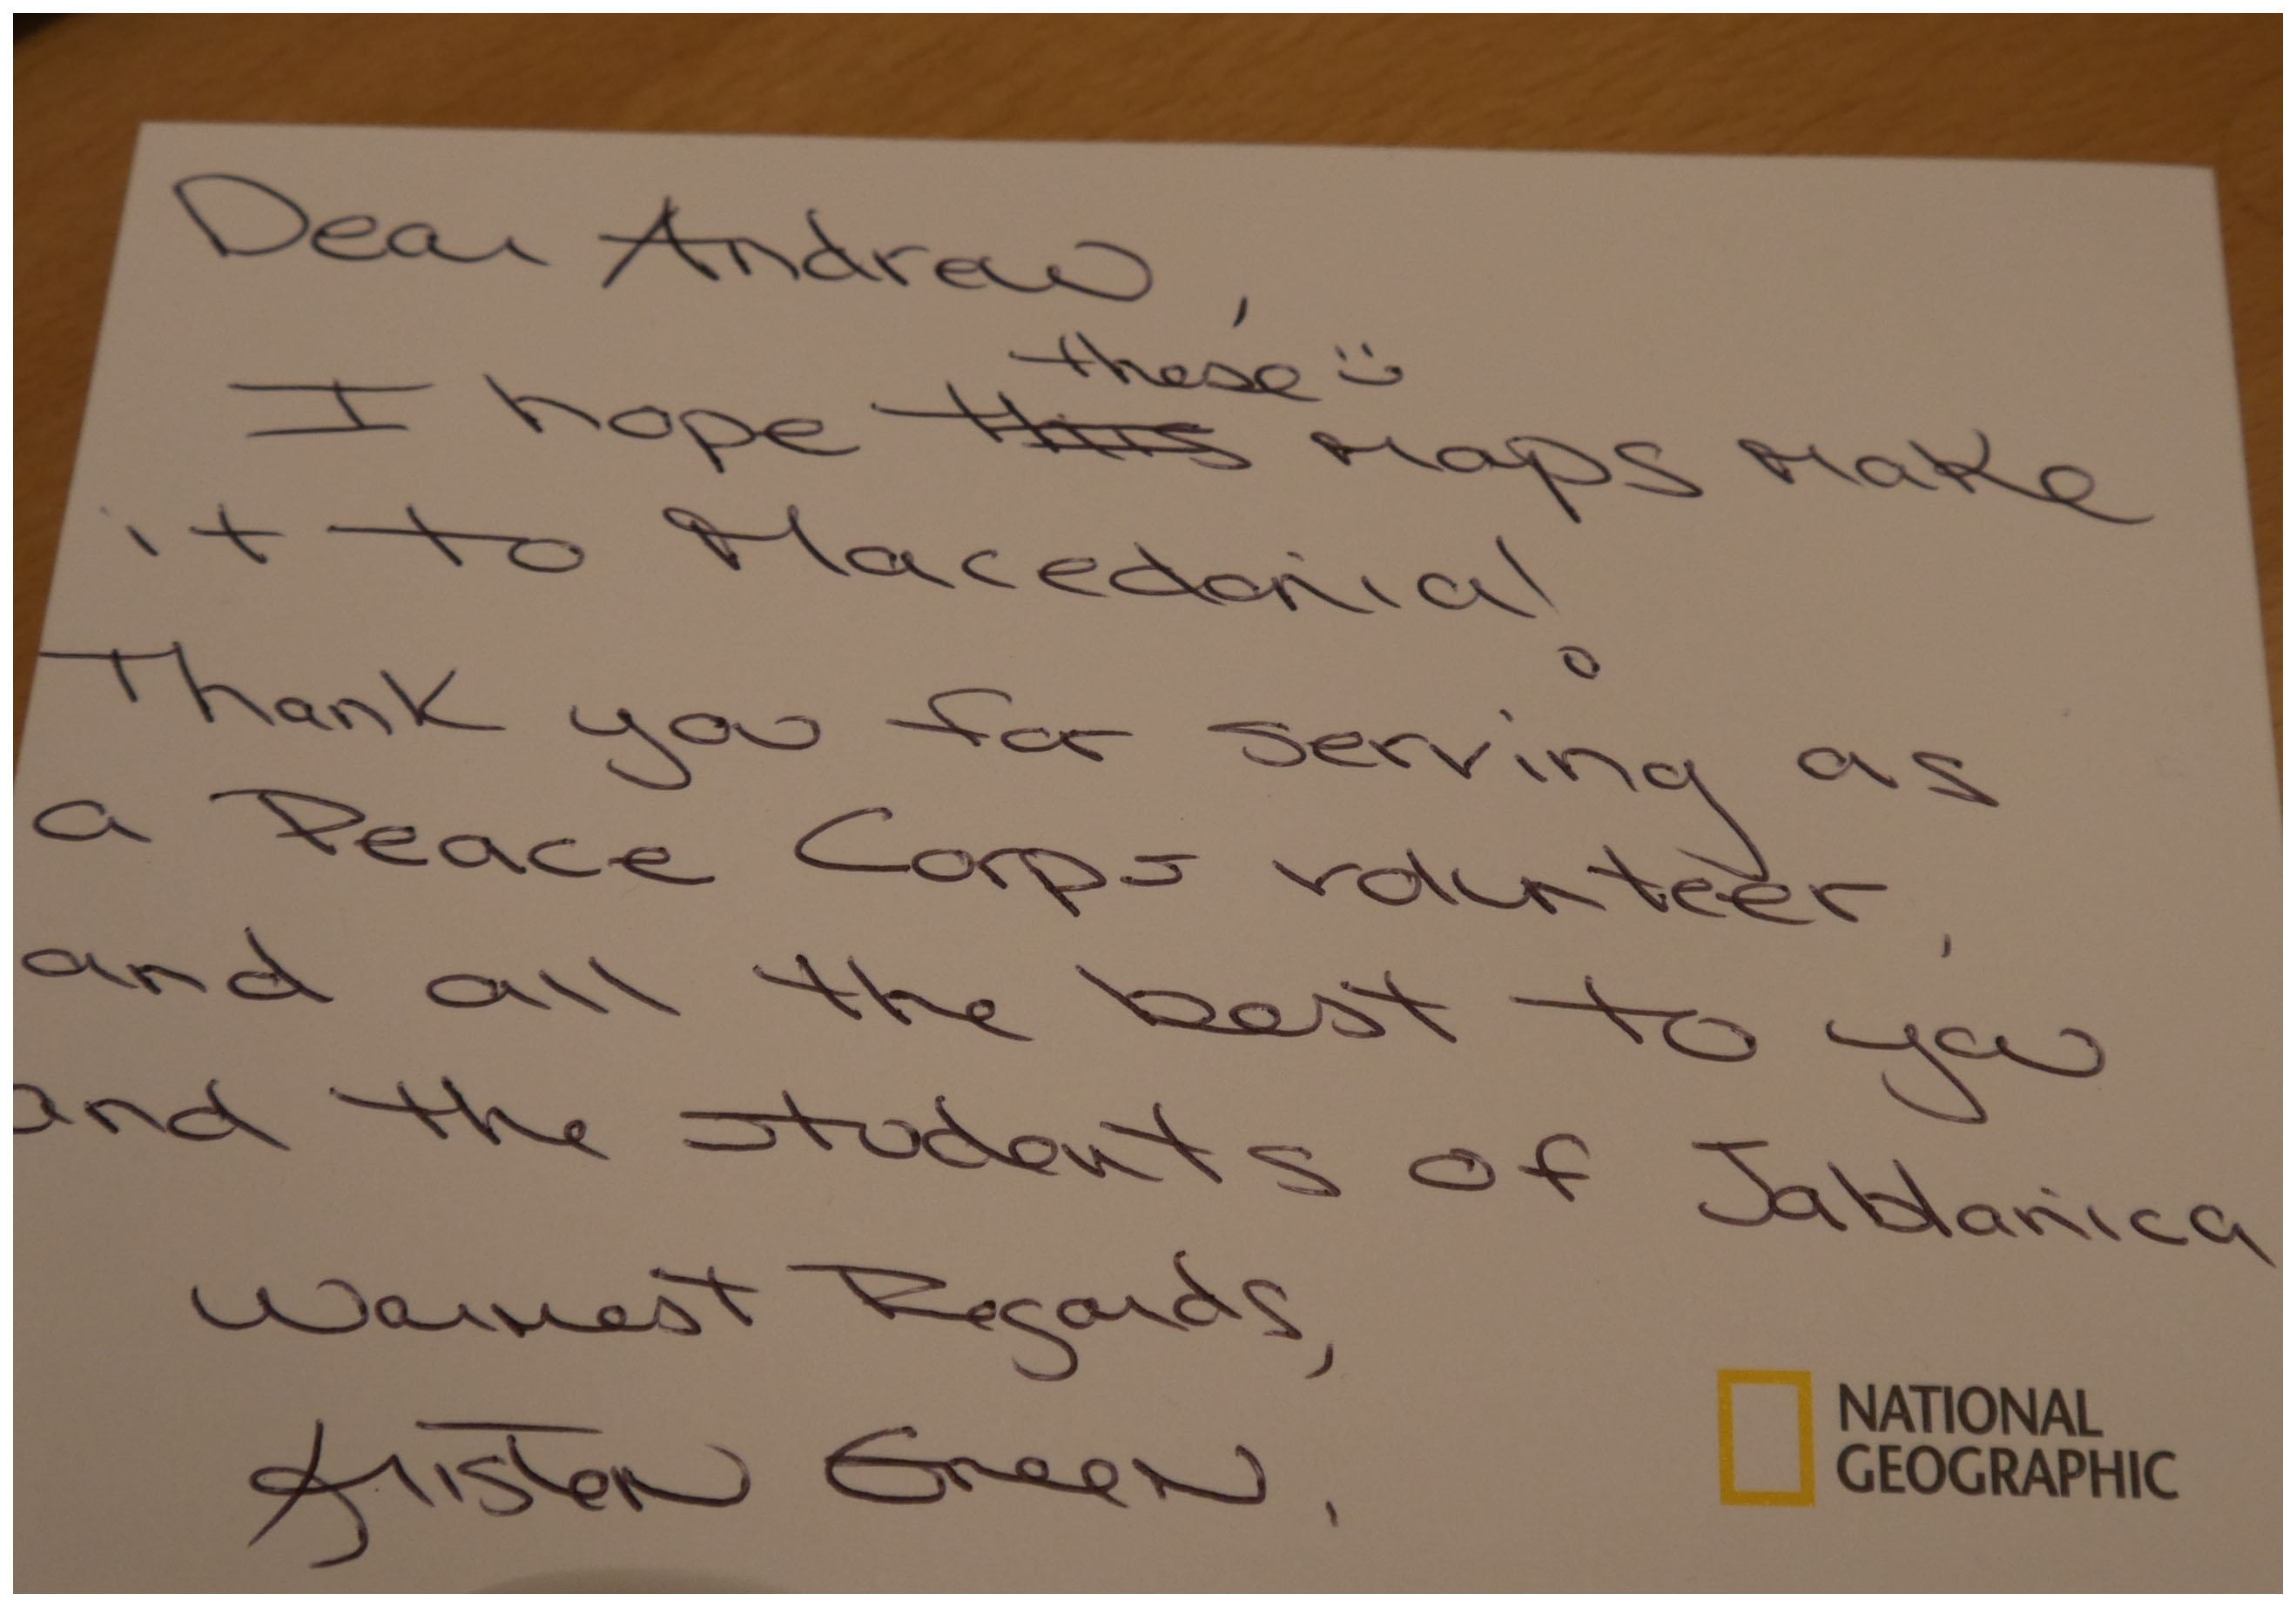 Dear Andrew,
these :)
I hope this maps make
it to Macedonia!
Thank you for serving as
a Peace Corps volunteer,
and all the best to you
and the students of Jablanica
Warmest Regards,
Kristen Green,
NATIONAL
GEOGRAPHIC